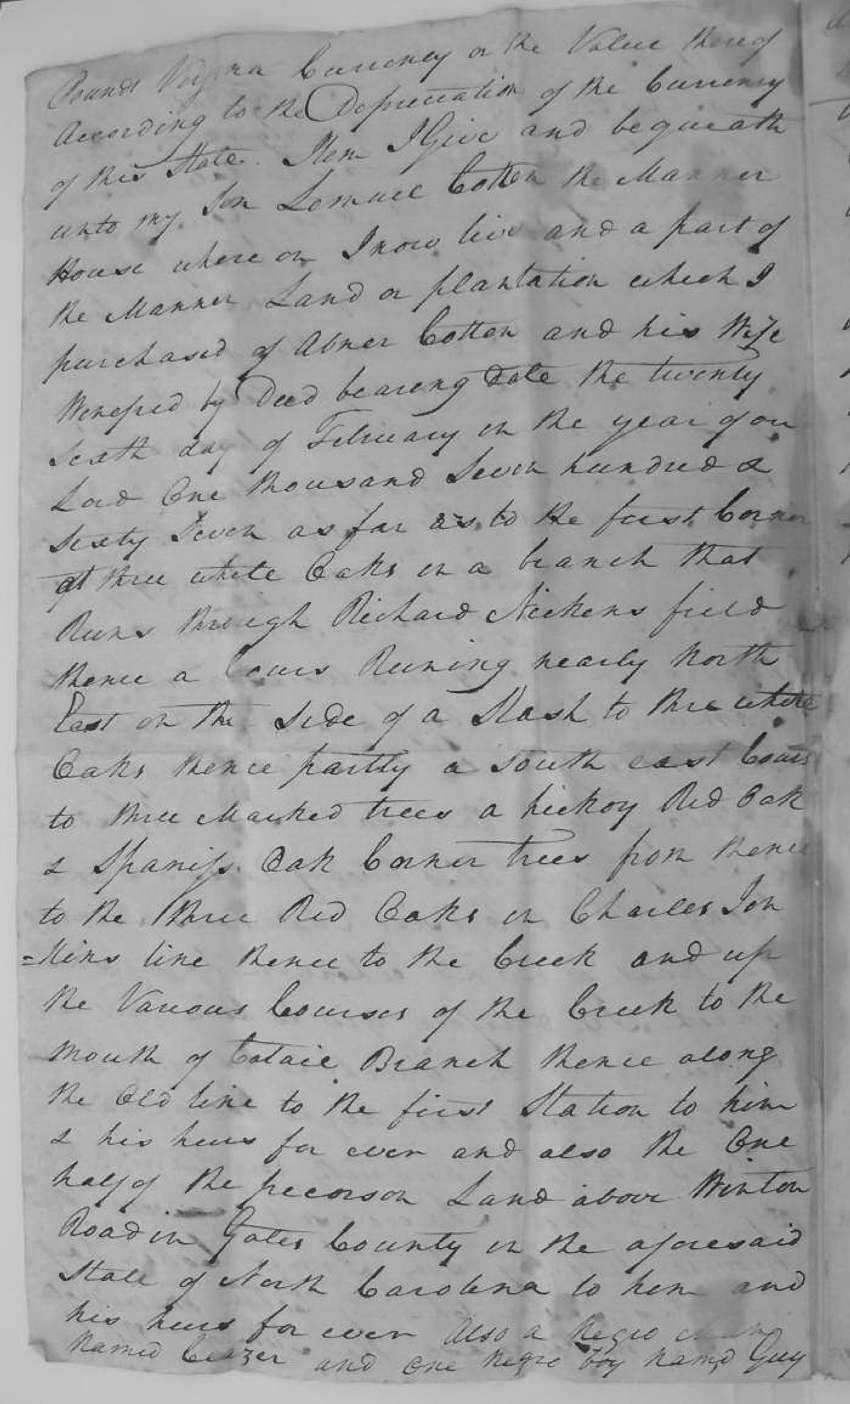 Pounds Virgina Currency or the Value thereof
According to the Depreciation of the Currency
of this State. Item I Give and bequeath
unto my Son Lemuel Cotten the Manner
House where on I now live and a part of
the Manner Land or plantation which I
purchased of Abner Cotten and his Wife
Winefred by Deed bearing date the twenty
Sixth day of February in the year of our
Lord One thousand Seven hundred &
Sixty Seven as far as to the first Corner
at three white Oaks in a branch that
Runs through Richard Nickens field
thence a Cours Runing nearly North
East on the Side of a Slash to three white
Oaks thence partly a South east Cours
to three Marked trees a hickory Red Oak
& Spanish Oak Corner trees from thence
to the three Red Oaks in Charles Jon
=kins line thence to the Creek and up
the Various Courses of the Creek to the
Mouth of Branch thence along
the Old line to the first Station to him
& his heirs for ever and also the One
half of the pecoson Land above Winton
Road in Gates County in the aforesaid
State of North Carolina to him and
his heirs for ever Also a Negro man
Named Ceazer and One Negro boy Named Guy